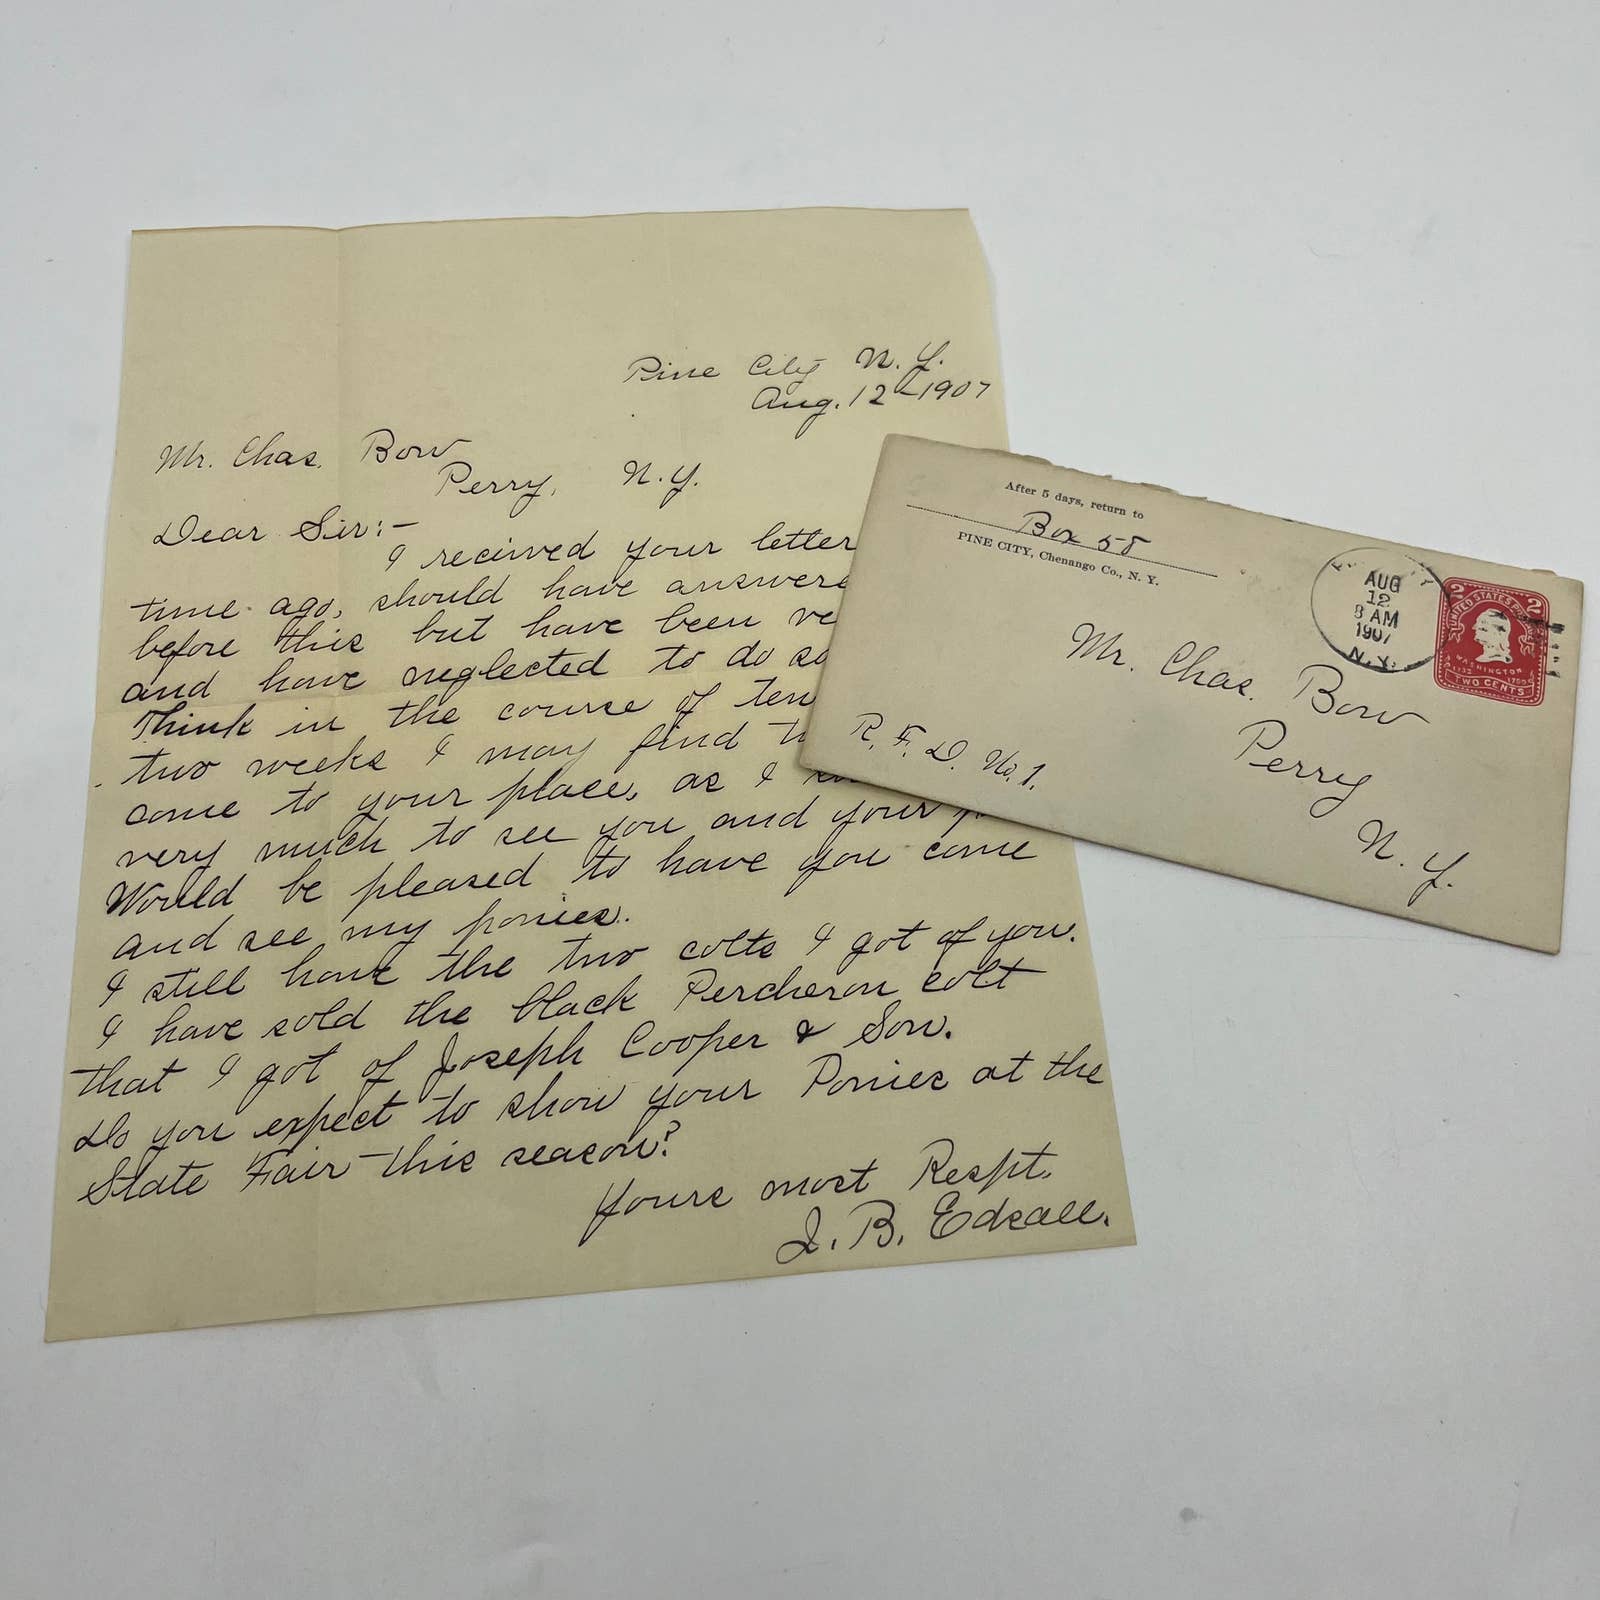 Pine City N.Y.
Aug. 12th 1907
Mr. Chas. Bow
Perry, N.Y.
Dear Sir:-
I recieved your letter
time ago, should have answere
before this but have been ve
and have neglected to do so
Think in the course of ten
two weeks I may find t
come to your place, as I
very much to see you and your
Would be pleased to have you come
and see my ponies.
I still have the two colts I got of you.
I have sold the black Percheron colt
that I got of Joseph Cooper & Son.
Do you expect to show your Ponies at the
State Fair this season?
Yours most Respt.
J. B. Edsall.
After 5 days, return to
Box 58
PINE CITY, Chenango Co., N. Y.
AUG
12
8 AM
1907
N.Y.
2 2
UNITED STATES
WASHINGTON
1732 1799
TWO CENTS
Mr. Chas. Bow
Perry
N. Y.
R. F. D. No. 1.